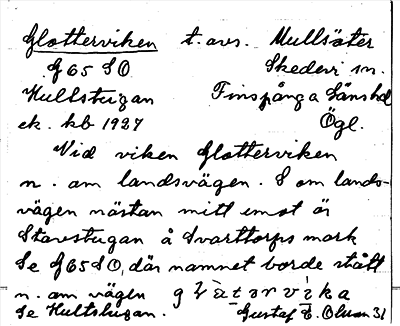 Glotterviken t. avs. Mullsäter
G 65 SO Skedevi sn.
Hultstugan Finspånga Länshd
ek. kb 1927 Ögl.
Vid viken Glotterviken
n. om landsvägen. S om lands-
vägen nästan mitt emot är
Stavstugan å Svarttorps mark
Se G 65 SO, där namnet borde stått
n. om vägen
Se Hultstugan. Gustaf E. Olsson 31